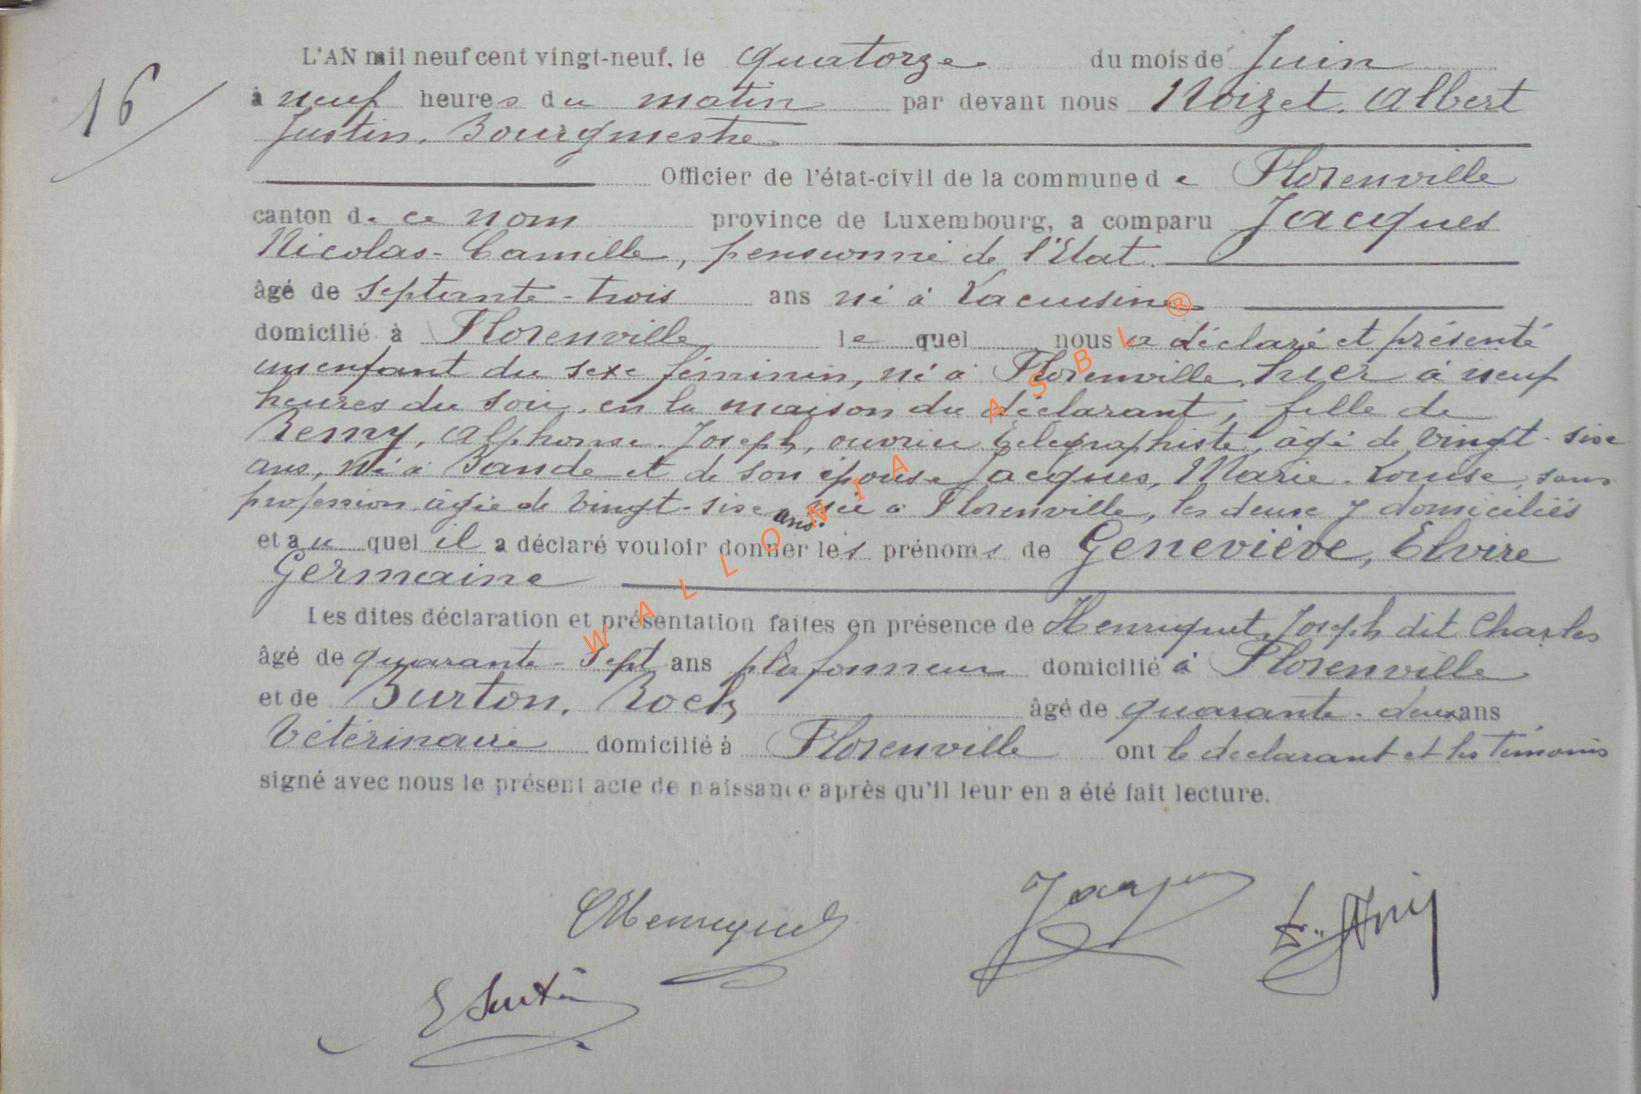 16
L'AN mil neuf cent vingt-neuf, le quatorze du mois de Juin
à neuf heures du matin par devant nous Noizet, Albert
Justin, Bourgmestre
Officier de l'état-civil de la commune de Florenville
canton de ce nom province de Luxembourg, a comparu Jacques
Nicolas-Camille, pensionné de l'Etat.
âgé de septante-trois ans né à Lacuisine
domicilié à Florenville lequel nous a déclaré et présenté
un enfant du sexe féminin, né à Florenville, hier à neuf
heures du soir, en la maison du déclarant, fille de
Remy, Alphonse-Joseph, ouvrier télégraphiste, âgé de vingt-six
ans, né à Bande et de son épouse Jacques, Marie-Louise, sans
profession âgée de vingt-six ans née à Florenville, les deux y domiciliés
et au quel il a déclaré vouloir donner les prénoms de Geneviève, Elvire
Germaine
Les dites déclaration et présentation faites en présence de Henriquet Joseph dit Charles
âgé de quarante-sept ans plafonneur domicilié à Florenville
et de Burton, Roch âgé de quarante-deux ans
Vétérinaire domicilié à Florenville ont le déclarant et les témoins
signé avec nous le présent acte de naissance après qu'il leur en a été fait lecture.
CHenriquet Jacques
WALLONIA ASBL ®